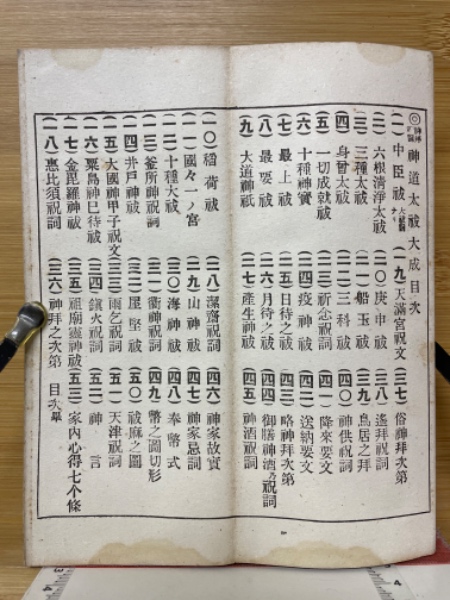 神道太祓大成目次
(一)中臣祓
(二)六根清淨太祓
(三)三種太祓
(四)身曾太祓
(五)一切成就祓
(六)十種神寶
(七)最上祓
(八)最要祓
(九)大道神祇
(一〇)稻荷祓
(一一)國々一ノ宮
(一二)十種大祓
(一三)釜所神祝詞
(一四)井戸神祓
(一五)大國神甲子祝文
(一六)粟島神巳待祓
(一七)金毘羅神祓
(一八)惠比須祝詞
(一九)天滿宮祝文
(二〇)庚申祓
(二一)船玉祓
(二二)三科祓
(二三)祈念祝詞
(二四)疫神祓
(二五)日待之祓
(二六)月待之祓
(二七)產生神祓
(二八)潔齋祝詞
(二九)山神祓
(三〇)海神祓
(三一)衢神祝詞
(三二)屋堅祓
(三三)雨乞祝詞
(三四)鎭火祝詞
(三五)祖廟靈神祓
(三六)神拜之次第
(三七)俗神拜次第
(三八)遙拜祝詞
(三九)鳥居之拜
(四〇)神供祝詞
(四一)降來要文
(四二)送納要文
(四三)略神拜祭文
(四四)御膳神酒乃祝詞
(四五)神酒祝詞
(四六)神家故實
(四七)神家忌詞
(四八)奉幣式
(四九)幣之圖切形
(五〇)祓麻之圖
(五一)天津祝詞
(五二)神言
(五三)家內心得七个條
目次畢